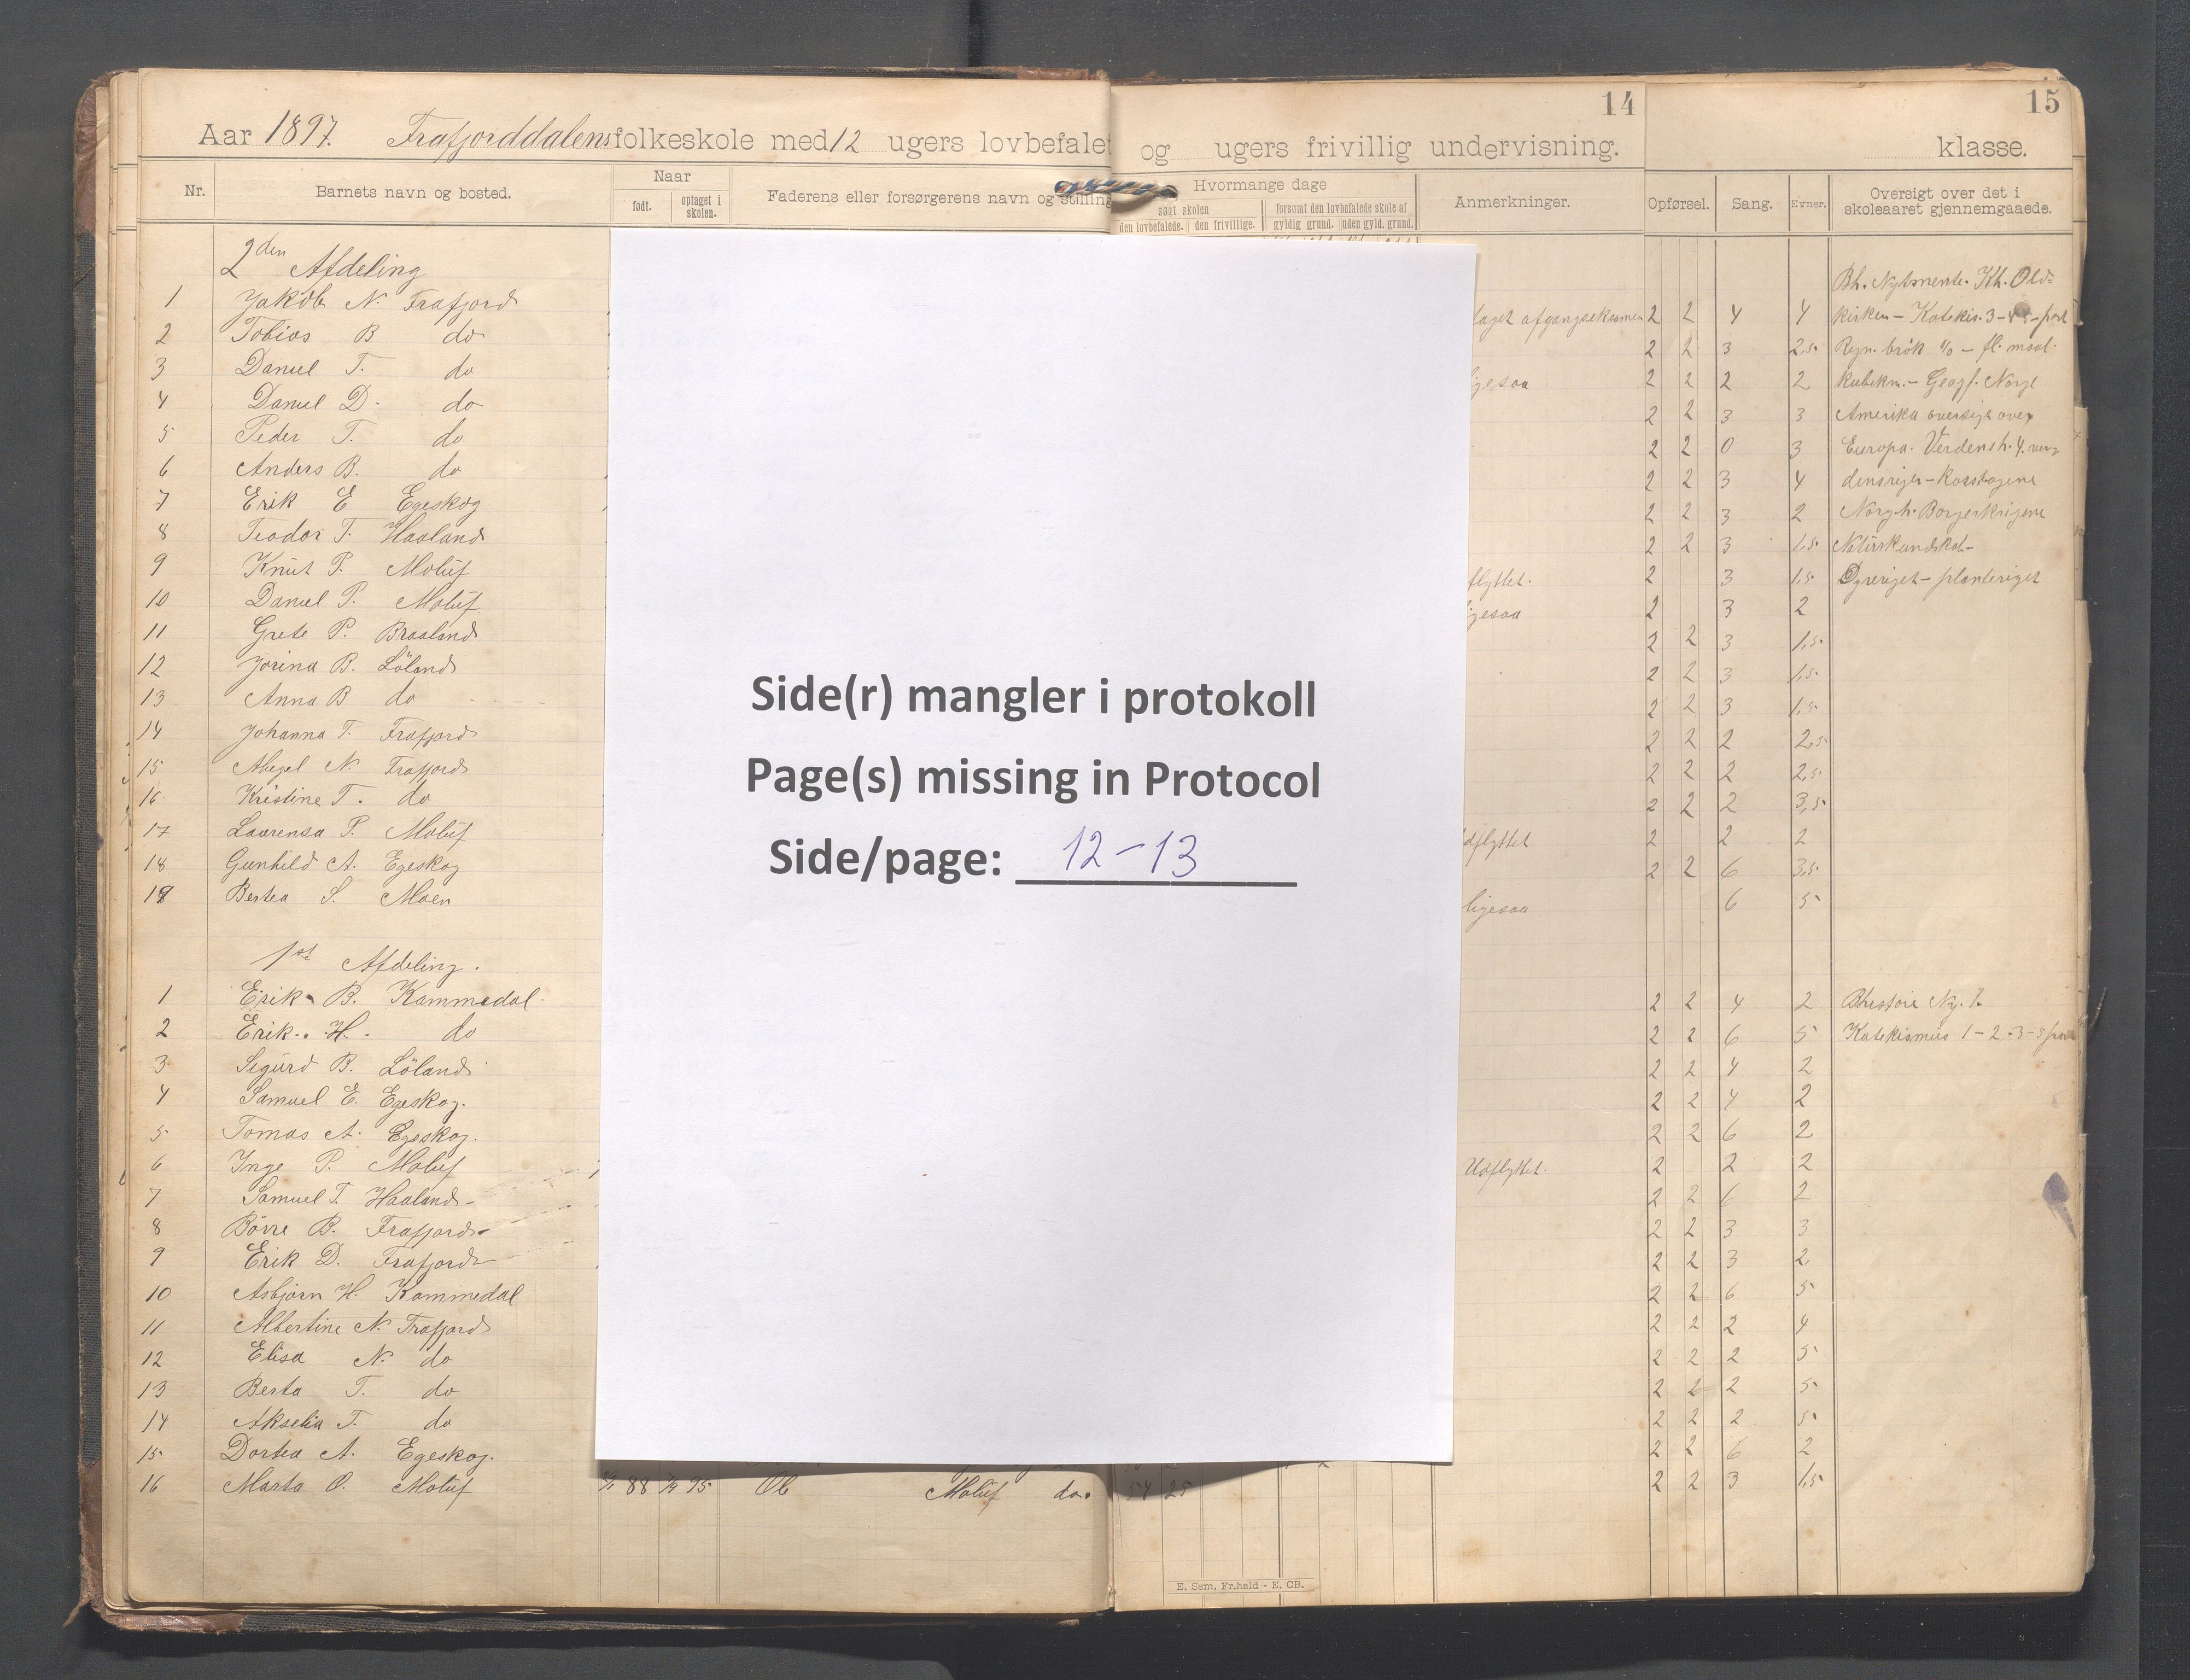 14
15
Aar 1897. Frafjorddalens folkeskole med 12 ugers lovbefalet og ugers frivillig undervisning. klasse.
Nr. Barnets navn og bosted. Naar født. optaget i skolen. Faderens eller forsørgerens navn og stilling
Hvormange dage søgt skolen den lovbefalede. den frivillige. forsømt den lovbefalede skole af gyldig grund. uden gyld. grund. Anmerkninger. Opførsel. Sang. Evner. Oversigt over det i skoleaaret gjennemgaaede.
2den Afdeling
Bh. Nytmente. Kh. Old-
1 Jakob N. Frafjord taget afgangseksamen 2 2 4 4 kirken - Katekis. 3-4-5-part
2 Tobias B do 2 2 3 2,5 Regn. brøk % - fl. maal.
3 Daniel T. do ligesaa 2 2 2 2 kubikm. - Geogf. Norge
4 Daniel D. do 2 2 3 3 Amerika oversigt over
5 Peder T. do 2 2 0 3 Europa. Verdensh. 4. verg
6 Anders B. do 2 2 3 4 densriger - Korstogene
7 Erik E Egeskog 2 2 3 2 Norg.h. Borgerkrigene
8 Teodor T. Haaland 2 2 3 1,5 Naturkundskab-
9 Knut P. Moluf flyttet. 2 3 1,5 Dyreriget - planteriget
10 Daniel P. Moluf. ligesaa 2 3 2
11 Grete P. Braaland 2 2 3 1,5
12 Jorina B. Löland 2 2 3 1,5
13 Anna B do 2 2 3 1,5
14 Johanna T. Frafjord 2 2 2 2,5
15 Abegel N. Frafjord 2 2 2 2,5
16 Kristine T. do 2 2 2 3,5
17 Laurensa P. Moluf Udflyttet 2 2 2
18 Gunhild A. Egeskog 2 2 6 3,5
19 Bertea S. Moen ligesaa 6 5
1st Afdeling.
1 Erik B. Kommedal. 2 2 4 2 Bhistorie Ny. T.
2 Erik H. do 2 2 6 5 Katekismus 1-2-3-5 part
3 Sigurd B. Löland 2 2 4 2
4 Samuel E. Egeskog. 2 2 4 2
5 Tomas A. Egeskog. 2 2 6 2
6 Inge P. Moluf Udflyttet. 2 2 2
7 Samuel T. Haaland 2 2 6 2
8 Börre B. Frafjord 2 2 3 3
9 Erik D. Frafjord 2 2 3 2
10 Asbjørn H. Kommedal 2 2 6 5
11 Albertine N. Frafjord 2 2 2 4
12 Elisa N. do 2 2 2 5
13 Berta T. do 2 2 2 5
14 Akselia T. do 2 2 2 5
15 Dortea A. Egeskog. 2 2 6 2
16 Marta O. Moluf 88 95 Ol Moluf do. 54 25 2 2 3 1,5
Side(r) mangler i protokoll
Page(s) missing in Protocol
Side/page: 12-13
E. Sem, Fr.hald - E. CB.